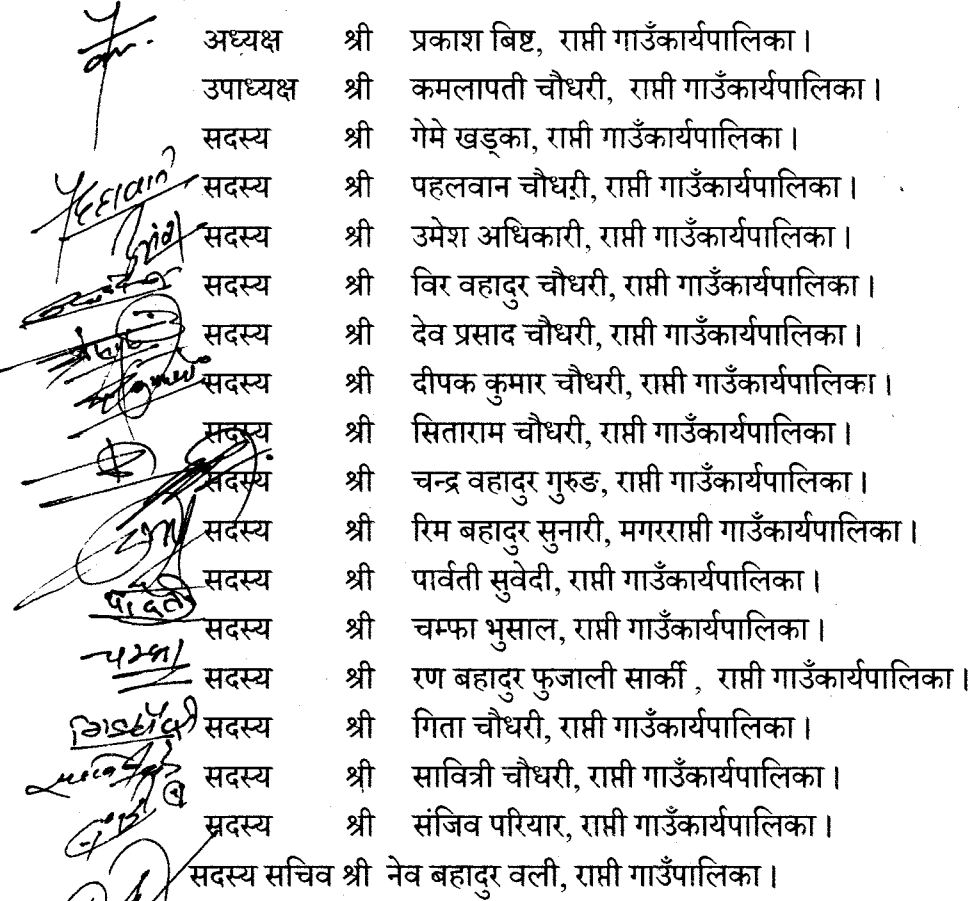 अध्यक्ष श्री प्रकाश बिष्ट, राप्ती गाउँकार्यपालिका ।
उपाध्यक्ष श्री कमलापती चौधरी, राप्ती गाउँकार्यपालिका ।
सदस्य श्री गेमे खड्का, राप्ती गाउँकार्यपालिका ।
सदस्य श्री पहलवान चौधरी, राप्ती गाउँकार्यपालिका ।
सदस्य श्री उमेश अधिकारी, राप्ती गाउँकार्यपालिका ।
सदस्य श्री विर वहादुर चौधरी, राप्ती गाउँकार्यपालिका ।
सदस्य श्री देव प्रसाद चौधरी, राप्ती गाउँकार्यपालिका ।
सदस्य श्री दीपक कुमार चौधरी, राप्ती गाउँकार्यपालिका ।
सदस्य श्री सिताराम चौधरी, राप्ती गाउँकार्यपालिका ।
सदस्य श्री चन्द्र वहादुर गुरुङ, राप्ती गाउँकार्यपालिका ।
सदस्य श्री रिम बहादुर सुनारी, मगरराप्ती गाउँकार्यपालिका ।
सदस्य श्री पार्वती सुवेदी, राप्ती गाउँकार्यपालिका ।
सदस्य श्री चम्फा भुसाल, राप्ती गाउँकार्यपालिका ।
सदस्य श्री रण बहादुर फुजाली सार्की , राप्ती गाउँकार्यपालिका ।
सदस्य श्री गिता चौधरी, राप्ती गाउँकार्यपालिका ।
सदस्य श्री सावित्री चौधरी, राप्ती गाउँकार्यपालिका ।
सदस्य श्री संजिव परियार, राप्ती गाउँकार्यपालिका ।
सदस्य सचिव श्री नेव बहादुर वली, राप्ती गाउँपालिका ।